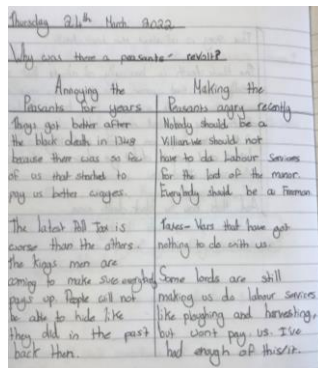 Thursday 24th March 2022
Why was there a peasants' revolt?
Annoying the
Peasants for years
Things got better after
the black death in 1348
because there was so few
of us that started to
pay us better wages.
The latest Poll Tax is
worse than the others.
The Kings men are
coming to make sure everybody
pays up. People will not
be able to hide like
they did in the past
back then.
Making the
Peasants angry recently
Nobody should be a
Villian. We should not
have to do Labour Services
for the lord of the manor.
Everybody should be a Freeman.
Taxes- Wars that have got
nothing to do with us.
Some lords are still
making us do labour services
like ploughing and harvesting,
but won't pay us. I've
had enough of this/it.